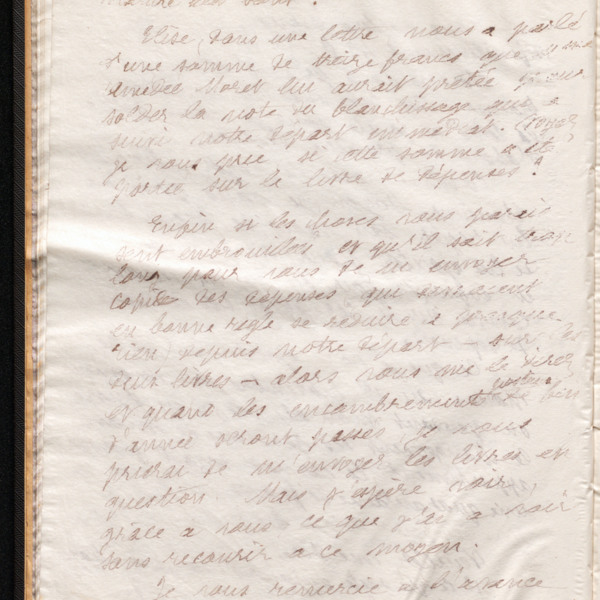 Elise, dans une lettre nous a parlé
d'une somme de treize francs que
Moret lui aurait prêtée pour
solder la note du blanchissage qui a
suivi notre départ immédiat. Voyez
je vous prie si cette somme a été
portée sur le livre de dépenses ?
Enfin si les choses vous parais
sent embrouillées et qu'il soit trop
long pour vous de m'envoyer
copie des dépenses qui devraient
en bonne règle se réduire à presque
rien depuis notre départ — sur les
dits livres — alors vous me le direz
et quand les encombrements postaux de fin
d'année seront passés je vous
prierai de m'envoyer les livres en
question. Mais j'espère voir,
grâce à vous ce que j'ai à voir
sans recourir à ce moyen.
Je vous remercie à l'avance